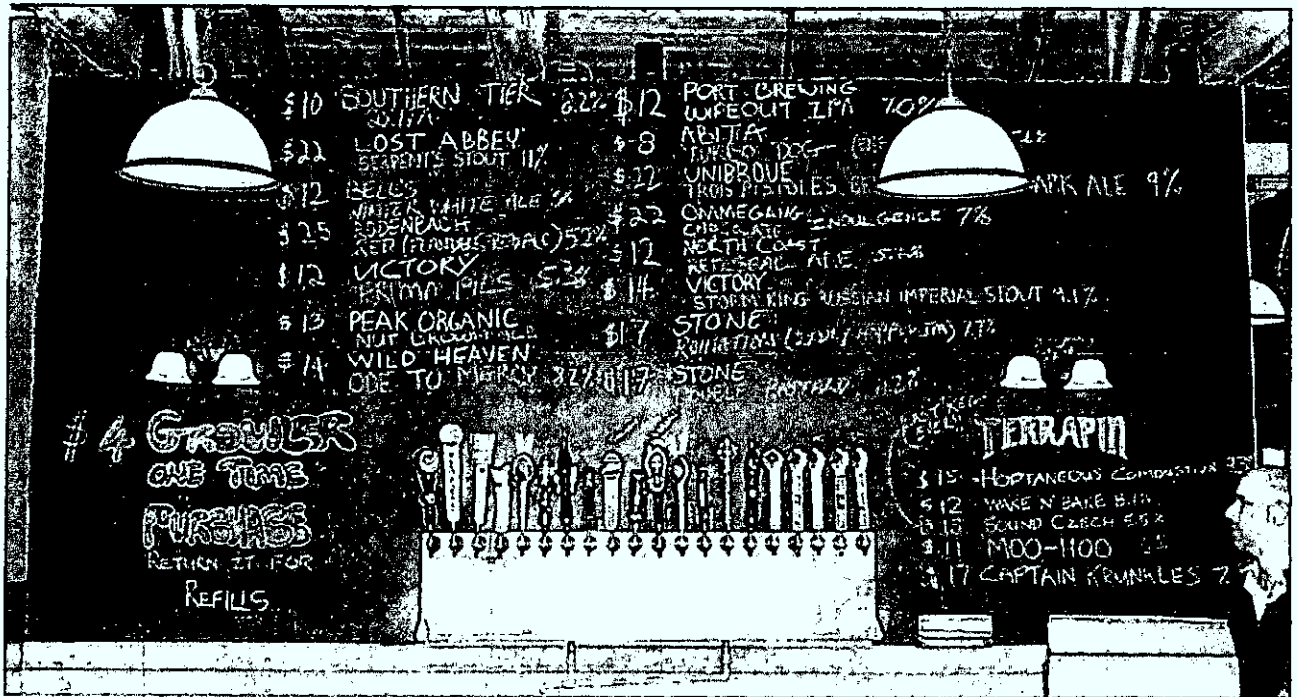 $10 SOUTHERN TIER 8.2%
$22 LOST ABBEY
SERPENT'S STOUT 11%
$12 BELL'S
WINTER WHITE ALE 5%
$25 RODENBACH
RED (FLANDERS RED ALE) 5.2%
$12 VICTORY
PRIMA PILS 5.3%
$13 PEAK ORGANIC
NUT BROWN ALE
$14 WILD HEAVEN
ODE TO MERCY 8.2%
$12 PORT BREWING
WIPEOUT IPA 7.0%
$8 ABITA
TURBO DOG
$22 UNIBROUE
TROIS PISTOLES DARK ALE 9%
$22 OMMEGANG
CHOCOLATE INDULGENCE 7%
$12 NORTH COAST
RED SEAL ALE
$14 VICTORY
STORM KING RUSSIAN IMPERIAL STOUT 9.1%
$17 STONE
RUINATION 7.7%
$17 STONE
BASTARD
$4 GROWLER
ONE TIME
PURCHASE
RETURN IT FOR
REFILLS
TERRAPIN
$15 HOPTANEOUS COMBUSTION
$12 WAKE N' BAKE
SOUND CZECH 5.5%
$11 MOO-HOO
$17 CAPTAIN KRUNKLES